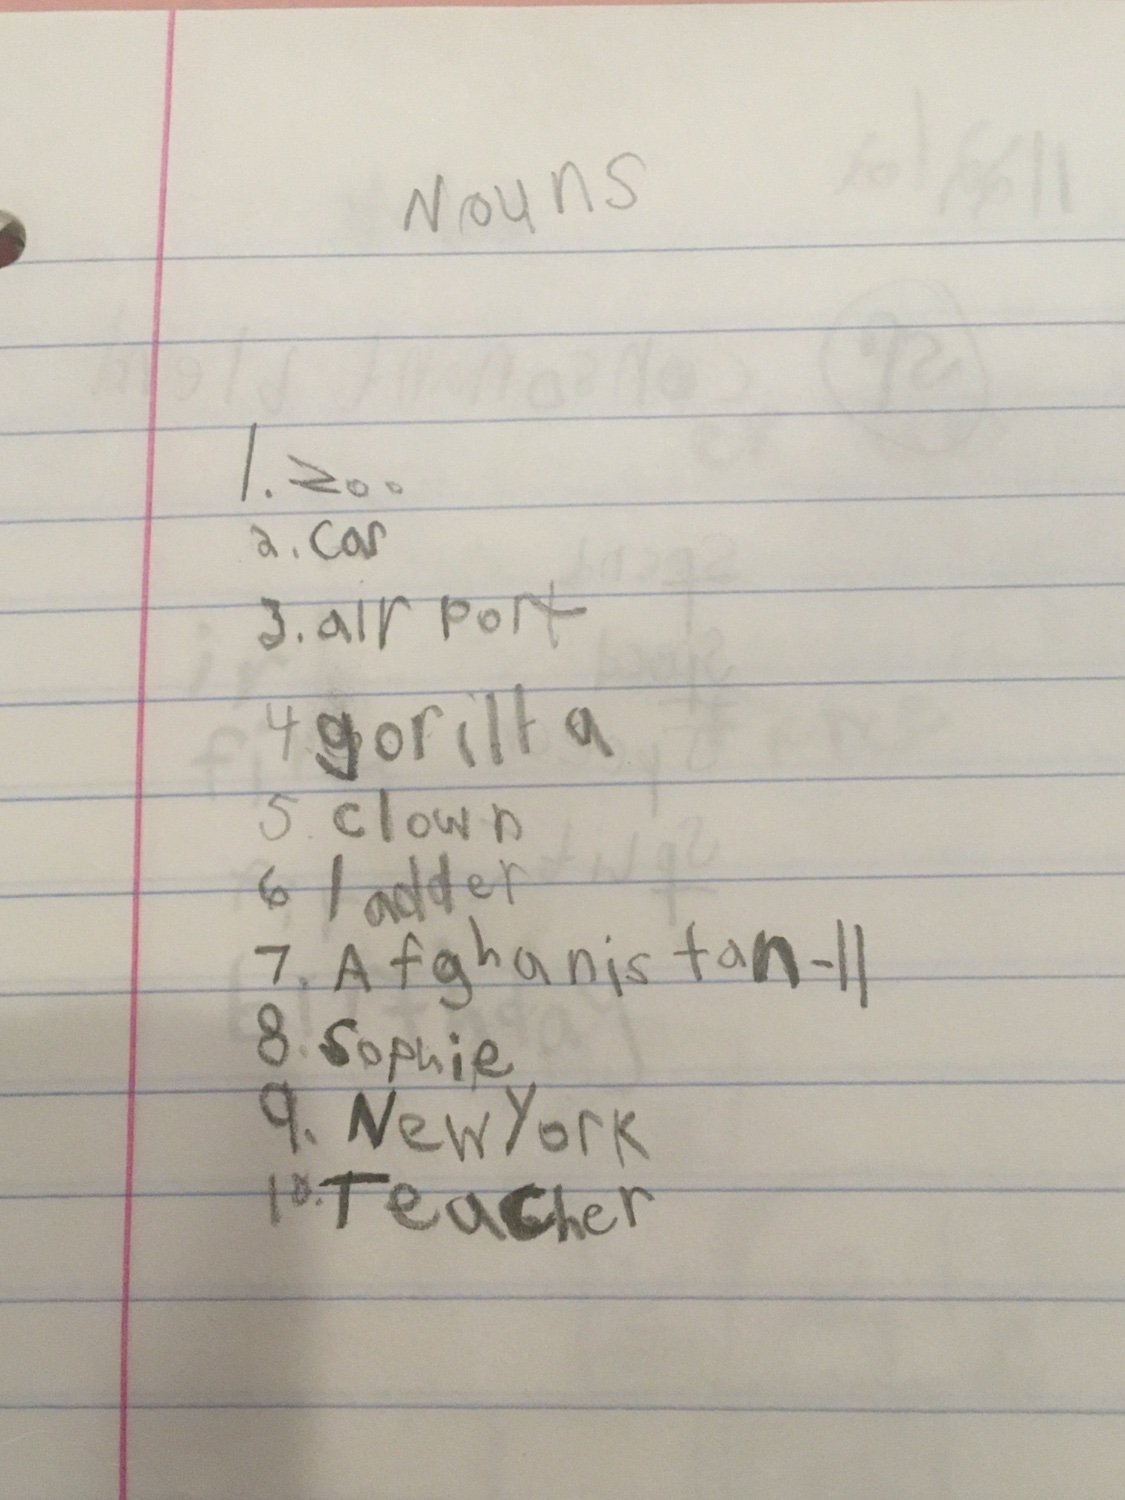 Nouns
1. zoo
2. car
3. air port
4 gorilla
5. clown
6 ladder
7. Afghanistan-11
8. Sophie
9. New York
10. Teacher